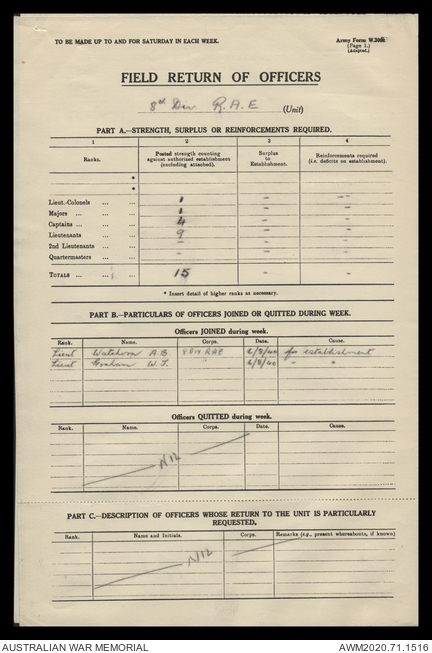 TO BE MADE UP TO AND FOR SATURDAY IN EACH WEEK.
Army Form W.
(Page 1.)
(Adapted.)
FIELD RETURN OF OFFICERS
8th Div R.A.E (Unit)
PART A.—STRENGTH, SURPLUS OR REINFORCEMENTS REQUIRED.
1 2 3 4
Ranks. Posted strength counting against authorized establishment (excluding attached). Surplus to Establishment. Reinforcements required (i.e. deficits on establishment).
*
*
Lieut.-Colonels ... ... 1 - --
Majors ... ... 1 - -
Captains ... ... 4 - -
Lieutenants ... 9 - -
2nd Lieutenants ... - - -
Quartermasters ... - - -
TOTALS ... ... 15 - -
* Insert detail of higher ranks as necessary.
PART B.—PARTICULARS OF OFFICERS JOINED OR QUITTED DURING WEEK.
Officers JOINED during week.
Rank. Name. Corps. Date. Cause.
Lieut A.B. 8 Div RAE 6/8/40 for establishment
Lieut Graham W.J. " 6/8/40 " "
Officers QUITTED during week.
Rank. Name. Corps. Date. Cause.
NIL
PART C.—DESCRIPTION OF OFFICERS WHOSE RETURN TO THE UNIT IS PARTICULARLY
REQUESTED.
Rank. Name and Initials. Corps. Remarks (e.g., present whereabouts, if known)
NIL
AUSTRALIAN WAR MEMORIAL AWM2020.71.1516